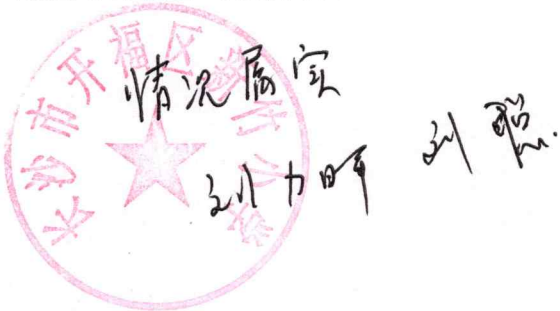 长沙市开福区
情况属实
刘力晖 刘聪